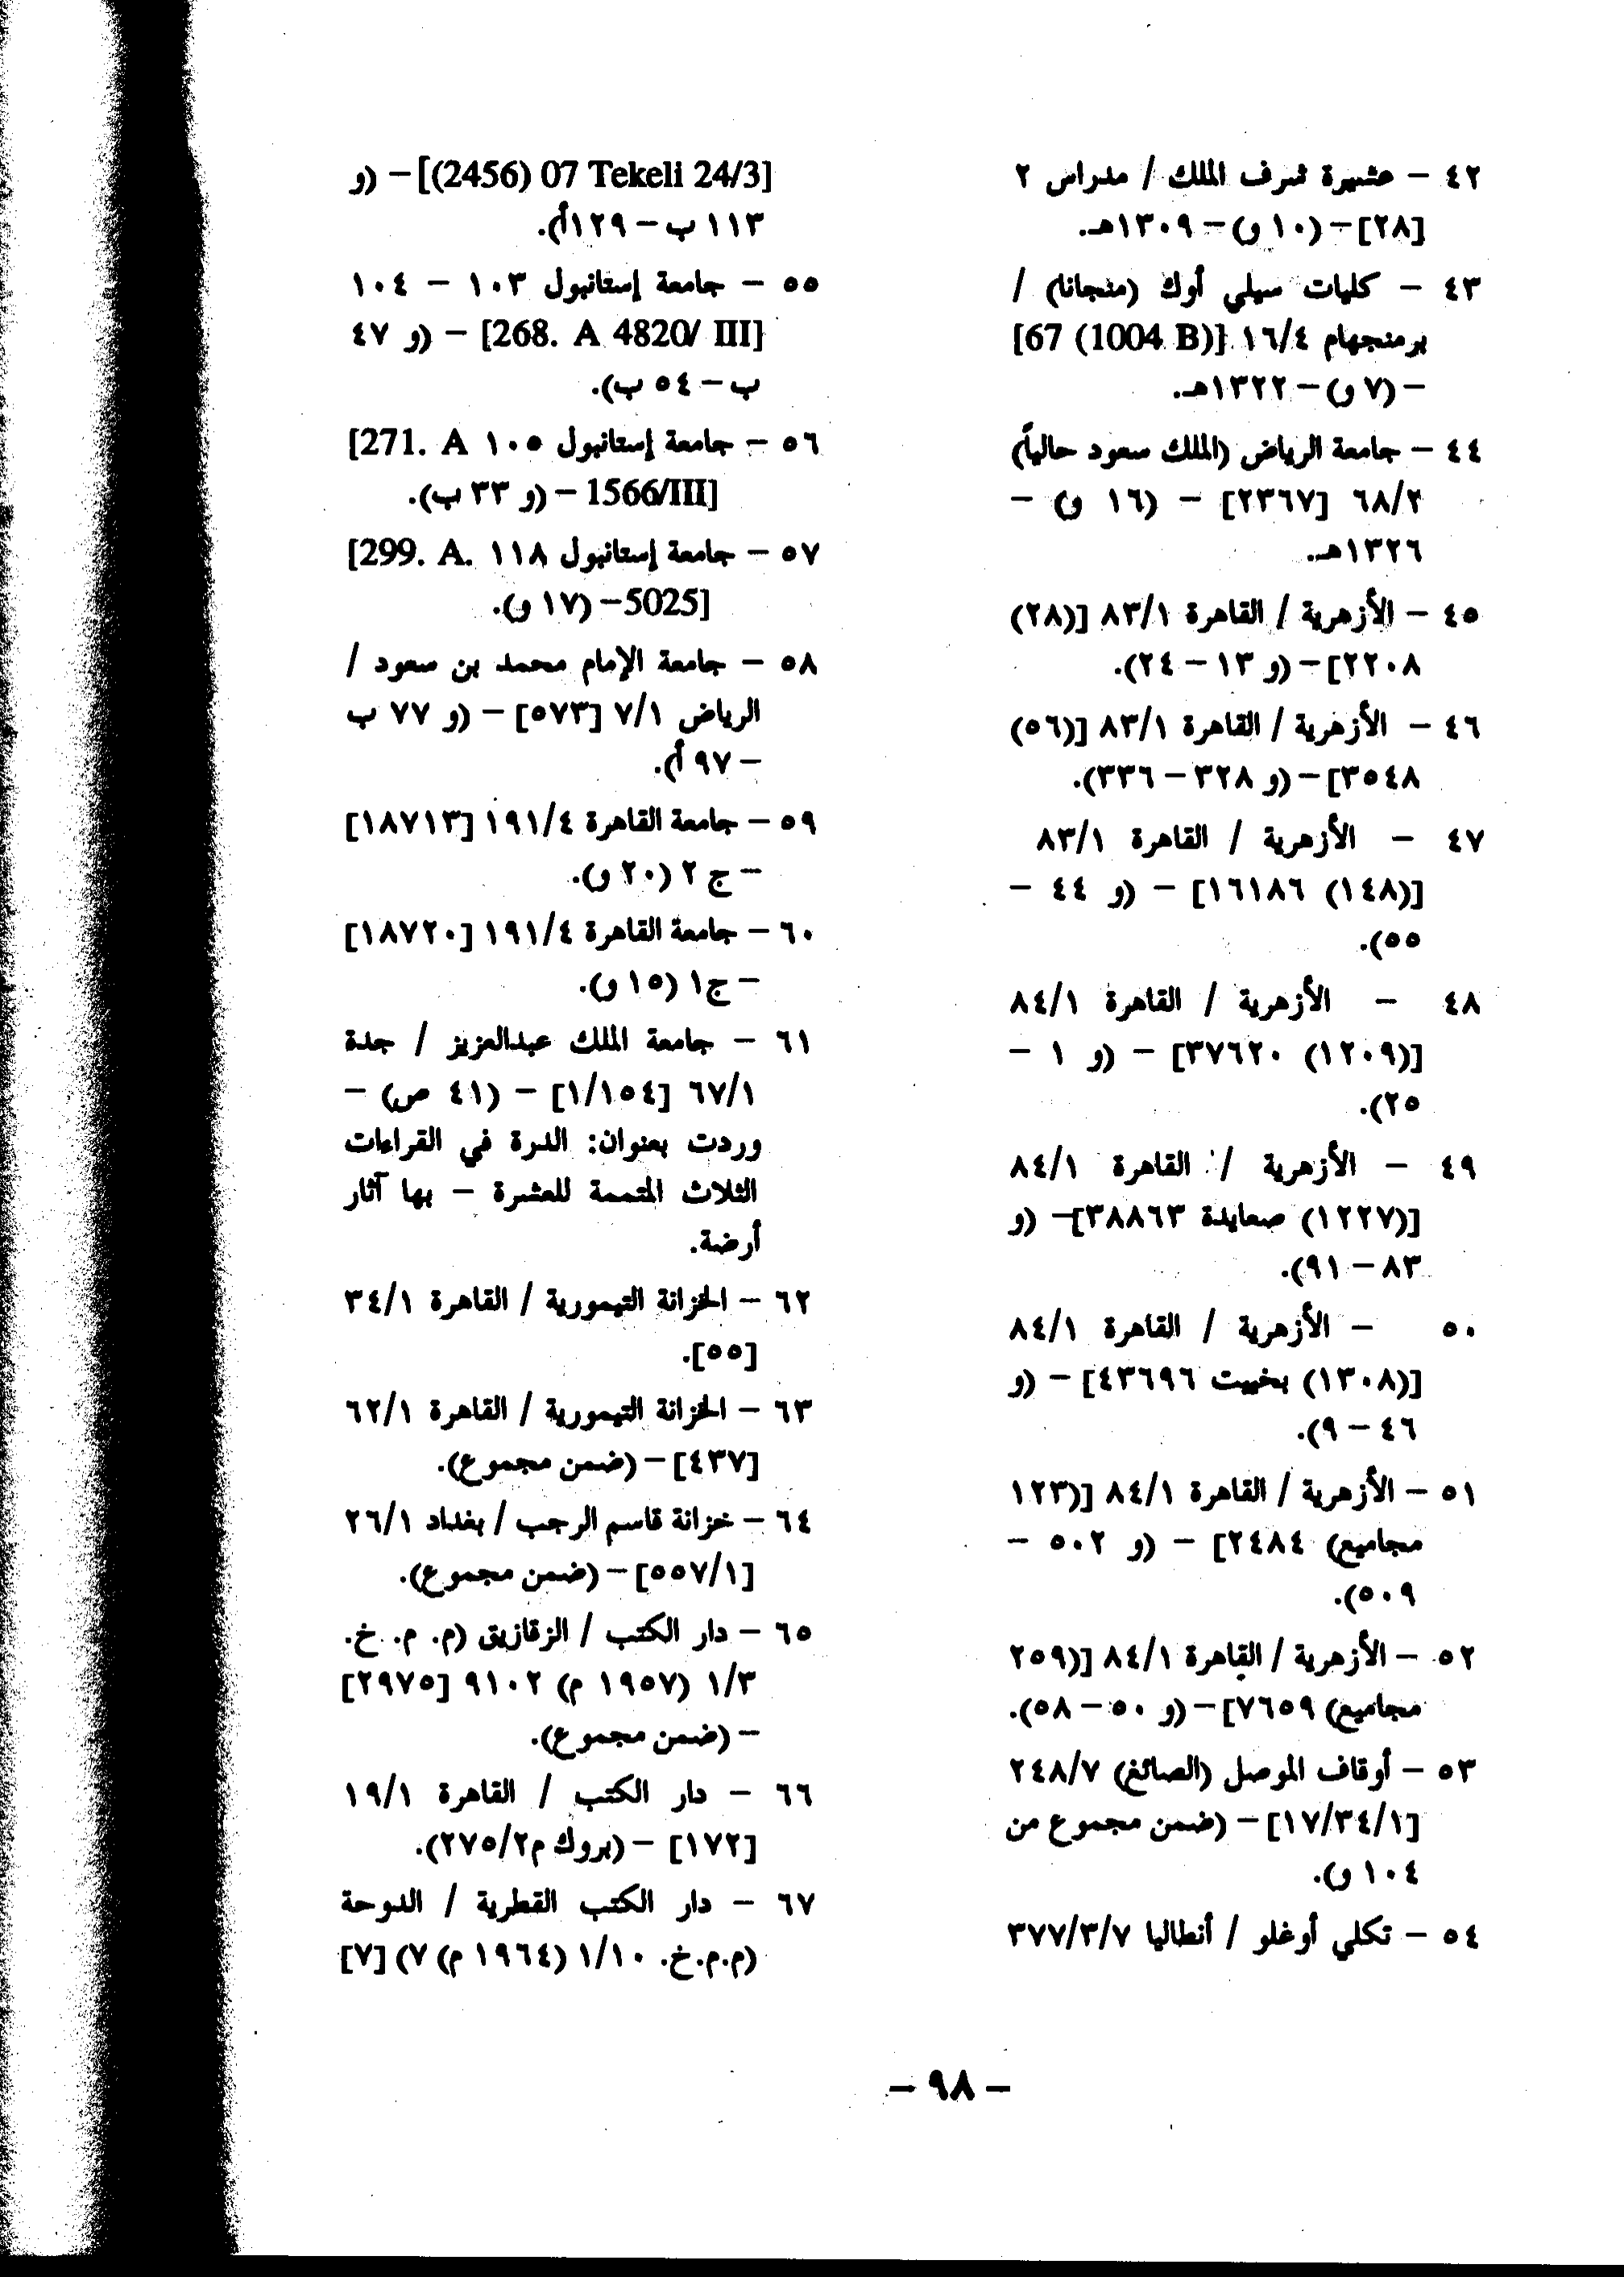 ٤٢ – عشيرة شرف الملك / مدراس ٢
[٢٨] – (١٠ و) – ١٣٠٩هـ.
٤٣ – كليات سيلي أوك (منجانا) /
برمنجهام ١٦/٤ [67 (1004 B)]
– (٧ و) – ١٣٢٢هـ.
٤٤ – جامعة الرياض (الملك سعود حالياً)
٦٨/٢ [٢٣٦٧] – (١٦ و) –
١٣٢٦هـ.
٤٥ – الأزهرية / القاهرة ٨٣/١ [(٢٨)
٢٢٠٨] – (و ١٣ – ٢٤).
٤٦ – الأزهرية / القاهرة ٨٣/١ [(٥٦)
٣٥٤٨] – (و ٣٢٨ – ٣٣٦).
٤٧ – الأزهرية / القاهرة ٨٣/١
[(١٤٨) ١٦١٨٦] – (و ٤٤ –
٥٥).
٤٨ – الأزهرية / القاهرة ٨٤/١
[(١٢٠٩) ٣٧٦٢٠] – (و ١ –
٢٥).
٤٩ – الأزهرية / القاهرة ٨٤/١
[(١٢٢٧) صعايدة ٣٨٨٦٣] – (و
٨٣ – ٩١).
٥٠ – الأزهرية / القاهرة ٨٤/١
[(١٣٠٨) بخيت ٤٣٦٩٦] – (و
٤٦ – ٩).
٥١ – الأزهرية / القاهرة ٨٤/١ [(١٢٣
مجاميع) ٢٤٨٤] – (و ٥٠٢ –
٥٠٩).
٥٢ – الأزهرية / القاهرة ٨٤/١ [(٢٥٩
مجاميع) ٧٦٥٩] – (و ٥٠ – ٥٨).
٥٣ – أوقاف الموصل (الصائغ) ٢٤٨/٧
[١٧/٣٤/١] – (ضمن مجموع من
١٠٤ و).
٥٤ – تكلي أوغلو / أنطاليا ٣٧٧/٣/٧
[(2456) 07 Tekeli 24/3] – (و
١١٣ ب – ١٢٩أ).
٥٥ – جامعة إستانبول ١٠٣ – ١٠٤
[268. A 4820/ III] – (و ٤٧
ب – ٥٤ ب).
٥٦ – جامعة إستانبول ١٠٥ [271. A
1566/III] – (و ٣٣ ب).
٥٧ – جامعة إستانبول ١١٨ [299. A.
5025] – (١٧ و).
٥٨ – جامعة الإمام محمد بن سعود /
الرياض ٧/١ [٥٧٣] – (و ٧٧ ب
– ٩٧ أ).
٥٩ – جامعة القاهرة ١٩١/٤ [١٨٧١٣]
– ج ٢ (٢٠ و).
٦٠ – جامعة القاهرة ١٩١/٤ [١٨٧٢٠]
– ج١ (١٥ و).
٦١ – جامعة الملك عبدالعزيز / جدة
٦٧/١ [١/١٥٤] – (٤١ ص) –
وردت بعنوان: الدرة في القراءات
الثلاث المتممة للعشرة – بها آثار
أرضة.
٦٢ – الخزانة التيمورية / القاهرة ٣٤/١
[٥٥].
٦٣ – الخزانة التيمورية / القاهرة ٦٢/١
[٤٣٧] – (ضمن مجموع).
٦٤ – خزانة قاسم الرجب / بغداد ٢٦/١
[٥٥٧/١] – (ضمن مجموع).
٦٥ – دار الكتب / الزقازيق (م. م. خ.
١/٣ (١٩٥٧ م) ٩١٠٢ [٢٩٧٥]
– (ضمن مجموع).
٦٦ – دار الكتب / القاهرة ١٩/١
[١٧٢] – (بروك م٢٧٥/٢).
٦٧ – دار الكتب القطرية / الدوحة
(م.م.خ. ١/١٠ (١٩٦٤ م) ٧) [٧]
– ٩٨ –